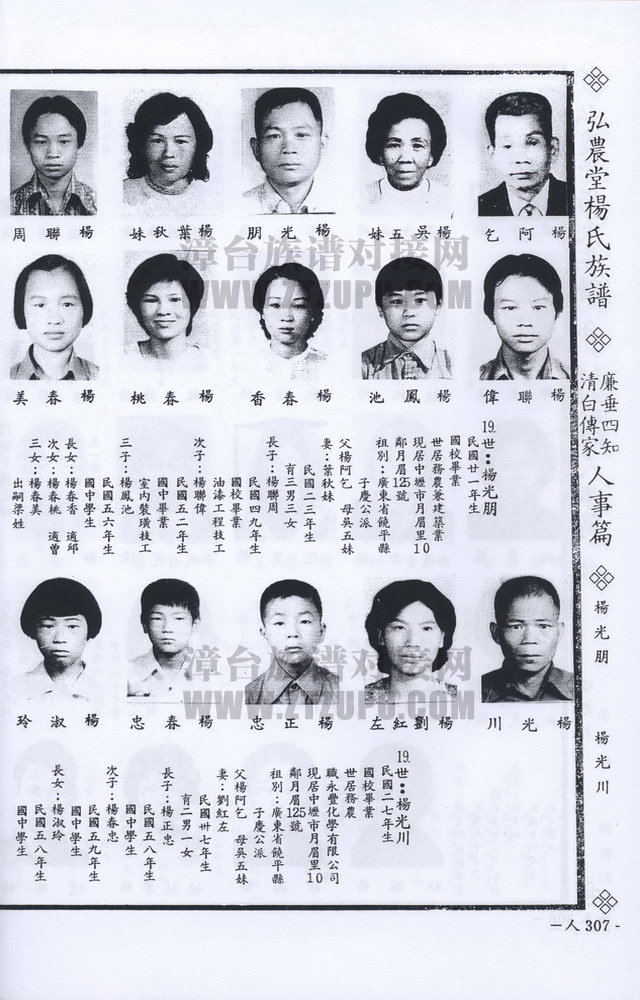 弘農堂楊氏族譜
廉垂四知
清白傳家
人事篇
楊光朋
楊光川
楊阿乞
楊吳五妹
楊光朋
楊葉秋妹
楊聯周
漳台族谱对接网
WWW.ZTZUPU.COM
楊聯偉
楊鳳池
楊春香
楊春桃
楊春美
19.世：楊光朋
民國廿一年生
國校畢業
世居務農兼建築業
現居中壢市月眉里10
鄰月眉125號
祖別：廣東省饒平縣
子慶公派
父楊阿乞 母吳五妹
妻：葉秋妹
民國二三年生
育三男三女
長子：楊聯周
民國四九年生
國校畢業
油漆工程技工
次子：楊聯偉
民國五二年生
國中畢業
室內裝璜技工
三子：楊鳳池
民國五六年生
國中學生
長女：楊春香 適邱
次女：楊春桃 適曾
三女：楊春美
出嗣梁姓
楊光川
楊劉紅左
楊正忠
楊春忠
楊淑玲
漳台族谱对接网
WWW.ZTZUPU.COM
19.世：楊光川
民國二七年生
國校畢業
世居務農
職永豐化學有限公司
現居中壢市月眉里10
鄰月眉125號
祖別：廣東省饒平縣
子慶公派
父楊阿乞 母吳五妹
妻：劉紅左
民國卅七年生
育二男一女
長子：楊正忠
民國五八年生
國中學生
次子：楊春忠
民國五九年生
國中學生
長女：楊淑玲
民國五八年生
國中學生
－人307-